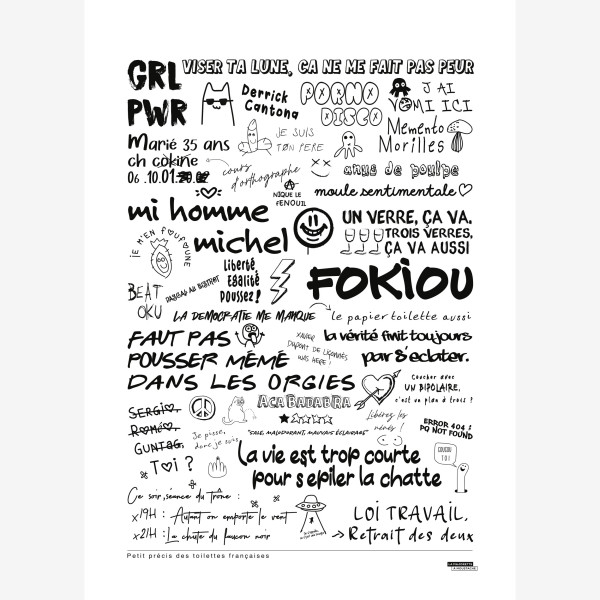 GRL
PWR
VISER TA LUNE, ÇA NE ME FAIT PAS PEUR
Derrick
Cantona
PORNO
DISCO
J'AI
VOMI ICI
Marié 35 ans
ch còkine
06.10.01.
JE SUIS
TON PÈRE
Memento
Morilles
cours
d'orthographe
anus de poulpe
NIQUE LE
FENOUIL
moule sentimentale
mi homme
michel
UN VERRE, ÇA VA.
TROIS VERRES,
ÇA VA AUSSI
JE M'EN FOUFOUNE
Liberté
Egalité
poussez!
FOKIOU
BEAT
OKU
LA DEMOCRATIE ME MANQUE
le papier toilette aussi
FAUT PAS
POUSSER MÉMÉ
DANS LES ORGIES
XAVIER
DUPONT DE LIGONNÈS
WAS HERE!
la vérité finit toujours
par s'éclater.
Coucher avec
UN BIPOLAIRE,
c'est un plan à trois ?
SERGIO.
Roméo.
GUNTAG.
Toi ?
ACABADABRA
"SALE, MALODORANT, MAUVAIS ÉCLAIRAGE"
Libérez les
nénés !
ERROR 404 :
PQ NOT FOUND
Je pisse,
donc je suis
la vie est trop courte
pour s'epiler la chatte
COUCOU
TOI
Ce soir, séance du trône :
x19H : Autant on emporte le vent
x21H : La chute du faucon noir
LOI TRAVAIL,
→ Retrait des deux
Petit précis des toilettes françaises
LA MAJORETTE
À MOUSTACHE